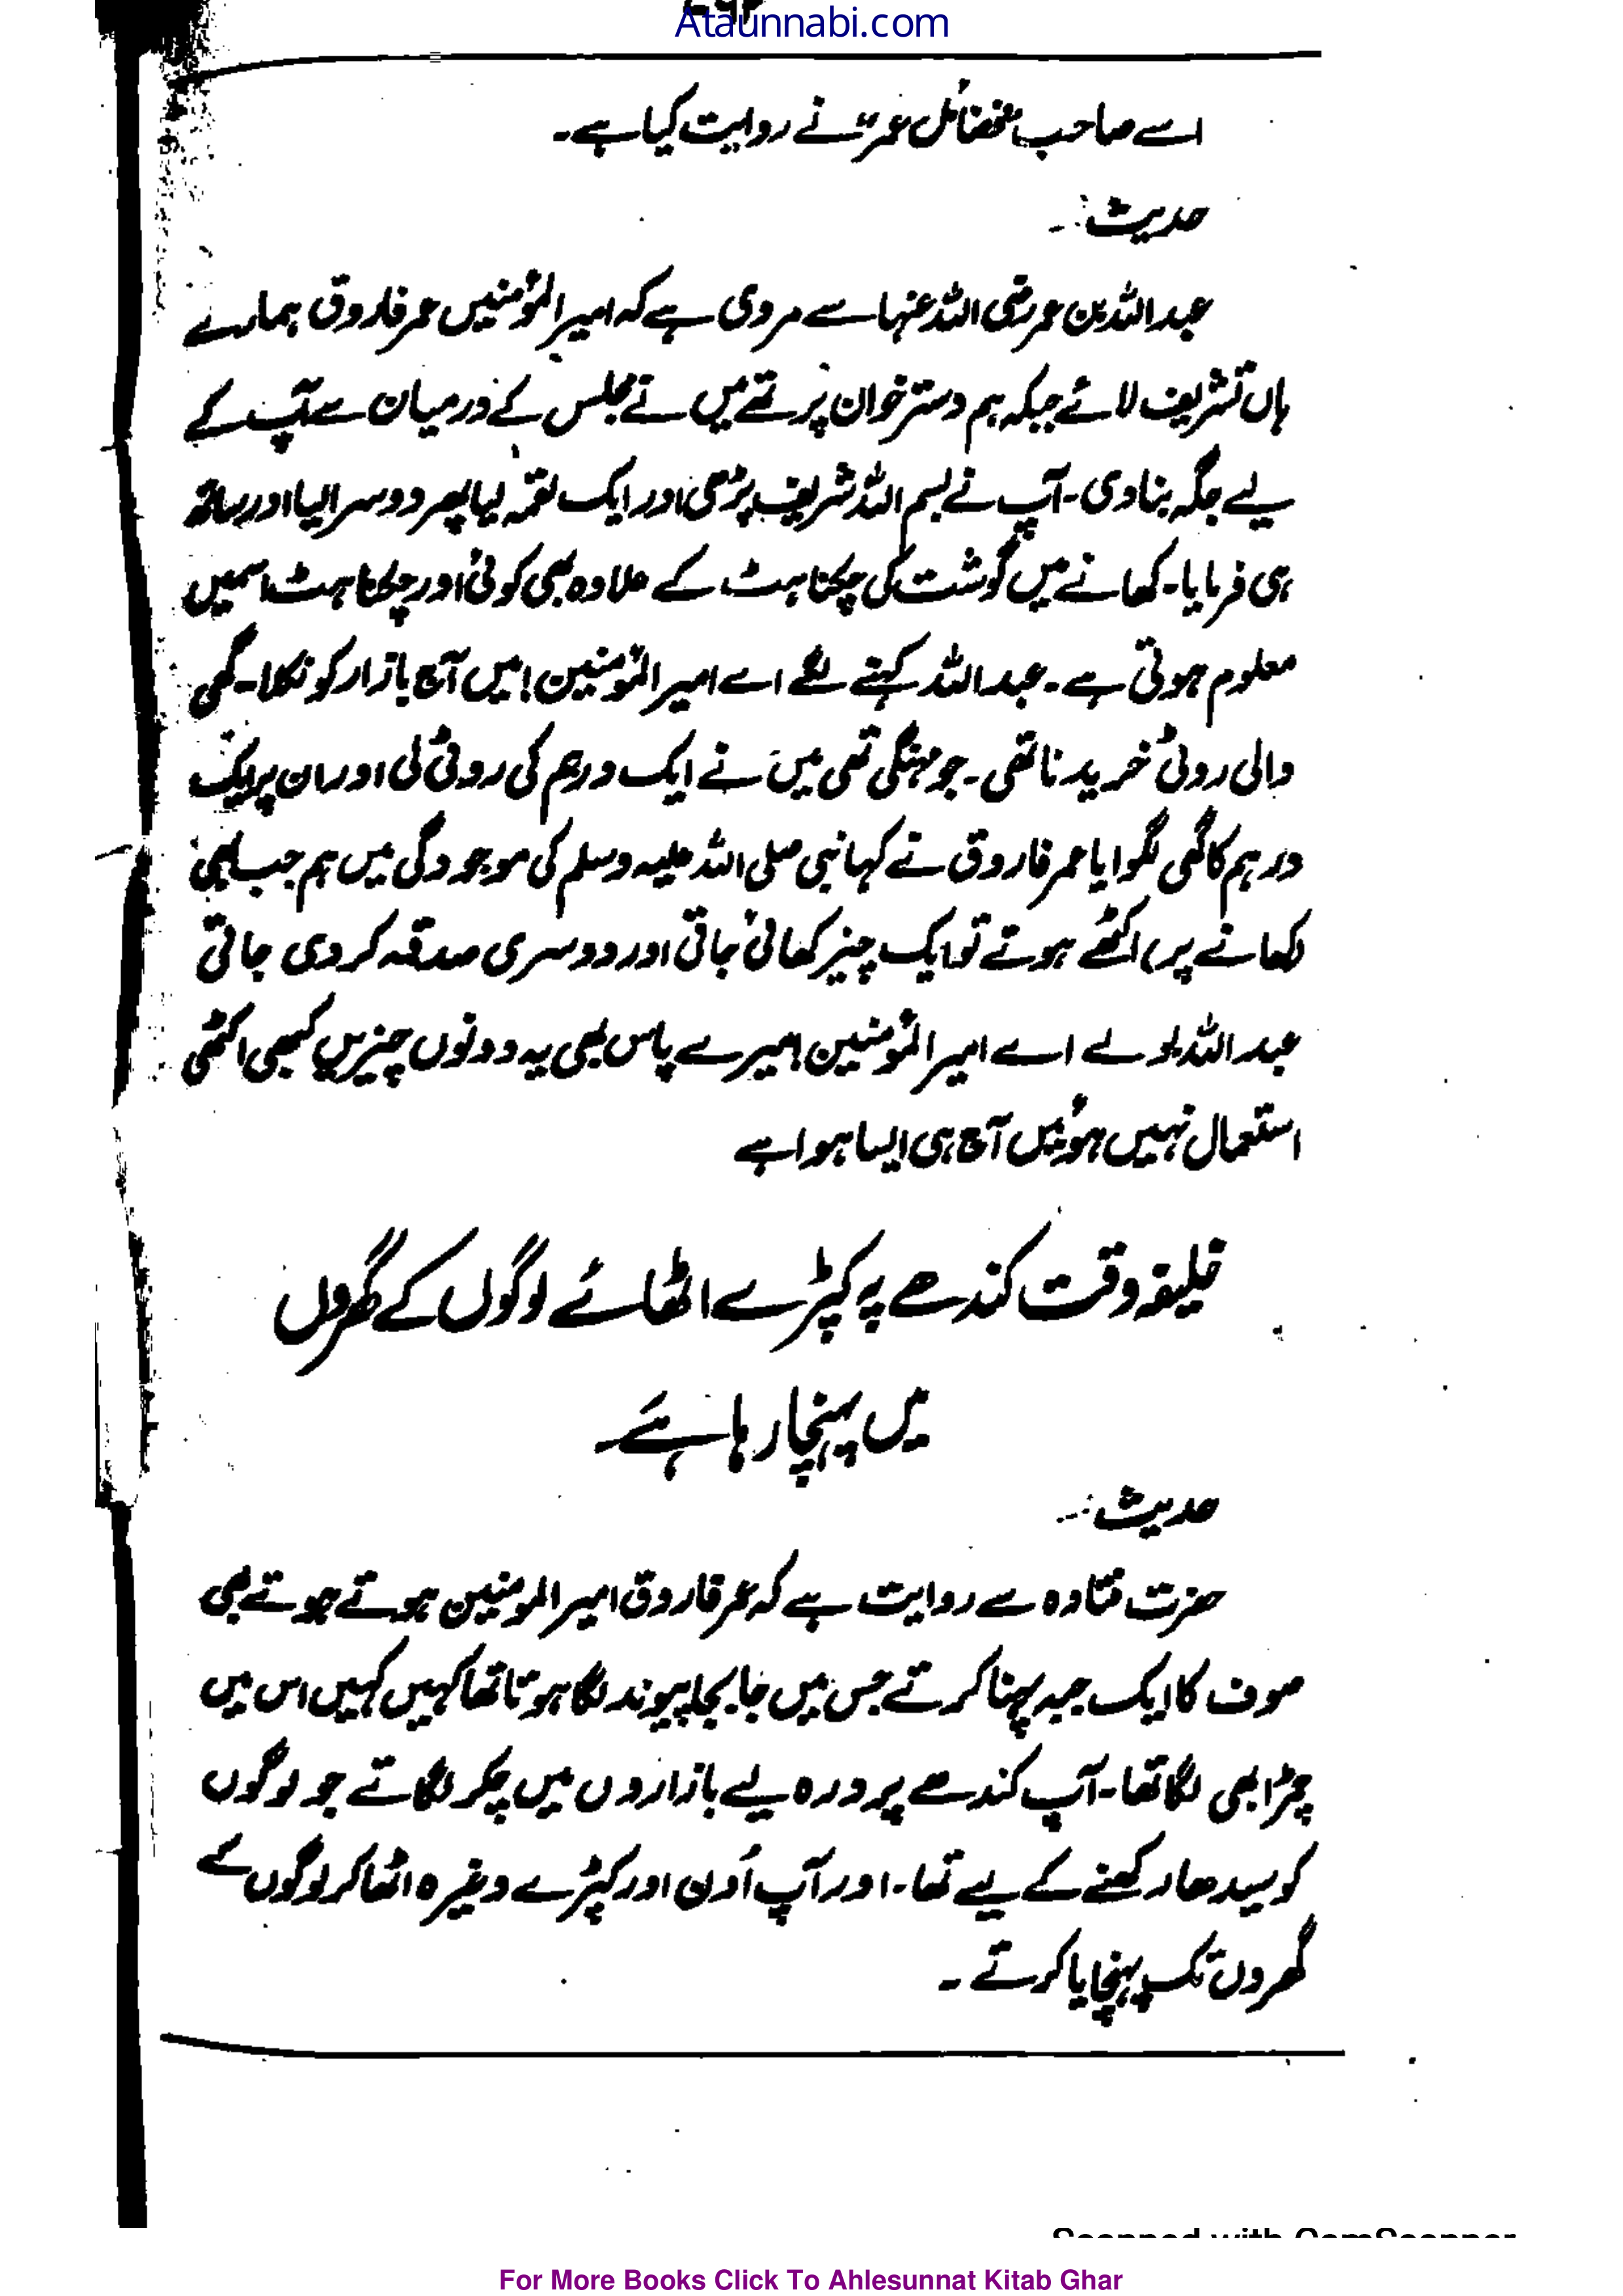 Ataunnabi.com
اسے صاحب فضائل عمرؓ نے روایت کیا ہے۔
حدیث:۔
عبداللہ بن عمر رضی اللہ عنہا سے مروی ہے کہ امیرالمؤمنیں عمر فاروق ہمارے
ہاں تشریف لائے جبکہ ہم دسترخوان پر تھے میں نے مجلس کے درمیان سے آپ کے
لیے جگہ بنادی۔ آپ نے بسم اللہ شریف پڑھی اور ایک لقمہ لیا پھر دوسرا لیا اور ساتھ
ہی فرمایا۔ کھانے میں گوشت کی چکناہٹ کے علاوہ بھی کوئی اور چکناہٹ اسمیں
معلوم ہوتی ہے۔ عبداللہ کہنے لگے اے امیرالمؤمنین! میں آج بازار کو نکلا۔ گھی
والی روٹی خریدنا تھی۔ جو مہنگی تھی میں نے ایک درھم کی روٹی لی اور ان پر ایک
درہم کا گھی لگوایا عمر فاروق نے کہا نبی صلی اللہ علیہ وسلم کی موجودگی میں ہم جب بھی
(کھانے پر) اکٹھے ہوتے تو ایک چیز کھائی جاتی اور دوسری صدقہ کر دی جاتی
عبداللہ بولے اے امیرالمؤمنین! میرے پاس بھی یہ دونوں چیزیں کبھی اکٹھی
استعمال نہیں ہوئیں آج ہی ایسا ہوا ہے
خلیفہ وقت کندھے پہ کپڑے اٹھائے لوگوں کے گھروں
میں پہنچا رہا ہے
حدیث:۔
حضرت قتادہ سے روایت ہے کہ عمر فاروق امیرالمومنین ہوتے ہوتے بھی
صوف کا ایک جبہ پہنا کرتے جس میں جا بجا پیوند لگا ہوتا تھا کہیں کہیں اس میں
چمڑا بھی لگا تھا۔ آپ کندھے پر درہ لیے بازاروں میں چکر لگاتے جو لوگوں
کو سیدھا رکھنے کے لیے تھا۔ اور آپ اُون اور کپڑے وغیرہ اٹھا کر لوگوں کے
گھروں تک پہنچایا کرتے ۔
Scanned with CamScanner
For More Books Click To Ahlesunnat Kitab Ghar